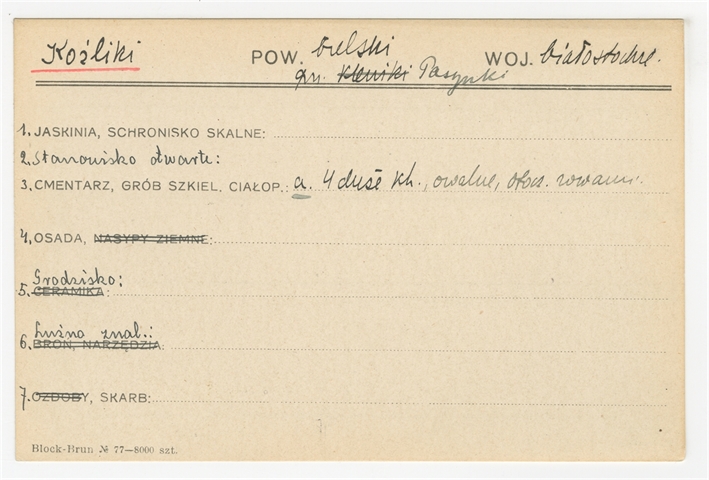 Koźliki POW. bielski WOJ. białostockie.
gm. Kleniki Pasynki
1. JASKINIA, SCHRONISKO SKALNE:
2. Stanowisko otwarte:
3. CMENTARZ, GRÓB SZKIEL. CIAŁOP.: a. 4 duże kh., owalne, otocz. rowami.
4. OSADA, NASYPY ZIEMNE:
Grodzisko:
5. CERAMIKA:
Luźne znal.:
6. BROŃ, NARZĘDZIA:
7. OZDOBY, SKARB:
Block-Brun № 77—8000 szt.